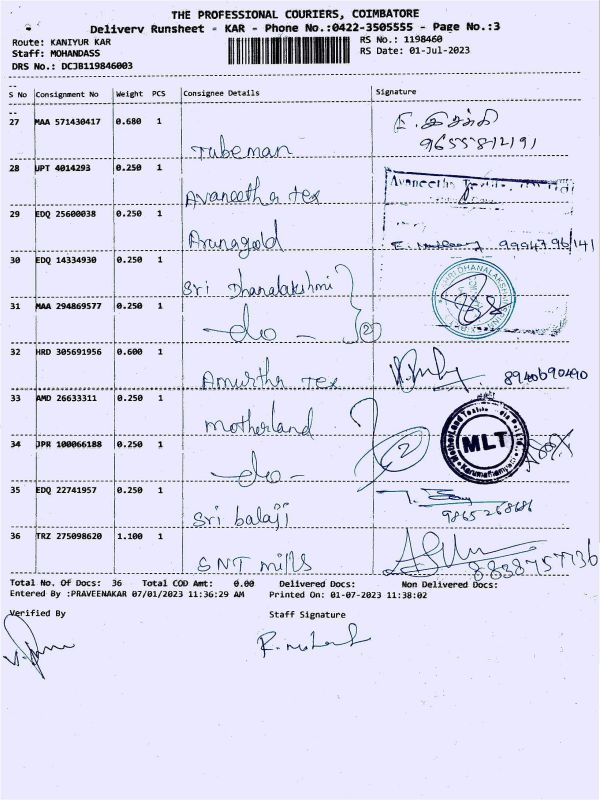 THE PROFESSIONAL COURIERS, COIMBATORE
Delivery Runsheet - KAR - Phone No.:0422-3505555 - Page No.:3
Route: KANIYUR KAR
RS No.: 1198460
Staff: MOHANDASS
RS Date: 01-Jul-2023
DRS No.: DCJB119846003
S No Consignment No Weight PCS Consignee Details Signature
27 MAA 571430417 0.680 1
Tubeman
9655812191
28 UPT 4014293 0.250 1
Avaneetha tex
Avaneetha
29 EDQ 25600038 0.250 1
Arunagold
30 EDQ 14334930 0.250 1
Sri Dhanalakshmi
31 MAA 294869577 0.250 1
-do- 2
32 HRD 305691956 0.600 1
Amurtha tex 8940690490
33 AMD 26633311 0.250 1
Motherland
34 JPR 100066188 0.250 1
-do- 2
MLT
35 EDQ 22741957 0.250 1
Sri balaji
9865268686
36 TRZ 275098620 1.100 1
SNT mills 8838757736
Total No. Of Docs: 36 Total COD Amt: 0.00 Delivered Docs: Non Delivered Docs:
Entered By :PRAVEENAKAR 07/01/2023 11:36:29 AM Printed On: 01-07-2023 11:38:02
Verified By Staff Signature